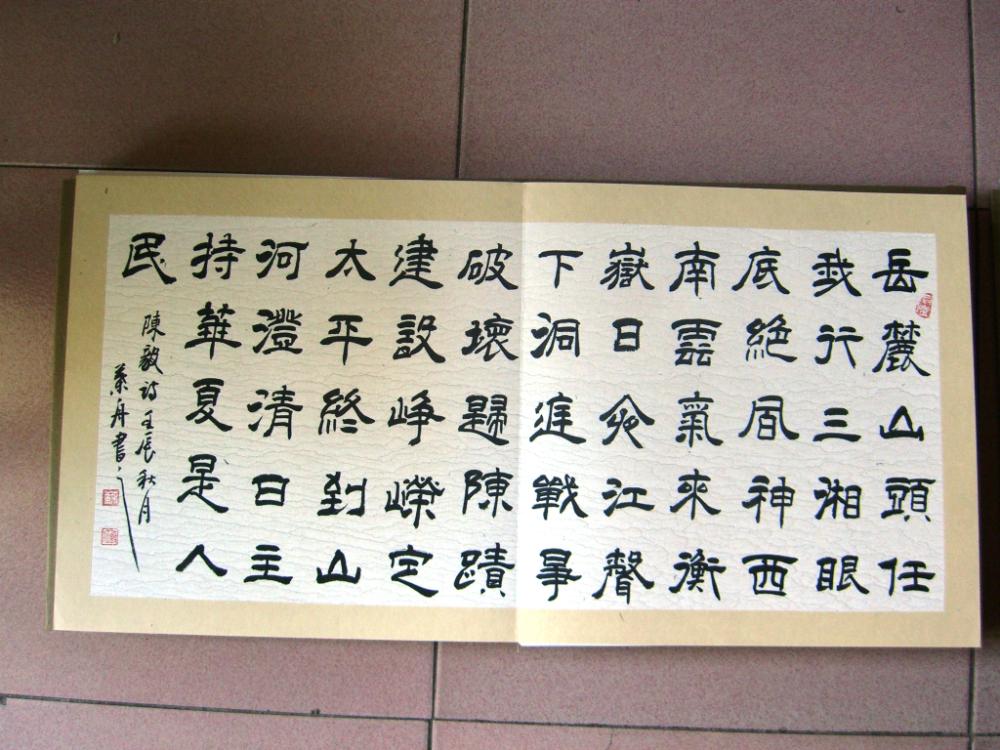 岳麓山頭任
我行三湘眼
底絶風神西
南雲氣來衡
嶽日夜江聲
下洞進戰爭
破壞歸陳蹟
建設崢嶸定
太平終到山
河澄清日主
持華夏是人
民
陳毅詩壬辰秋月
葉舟書